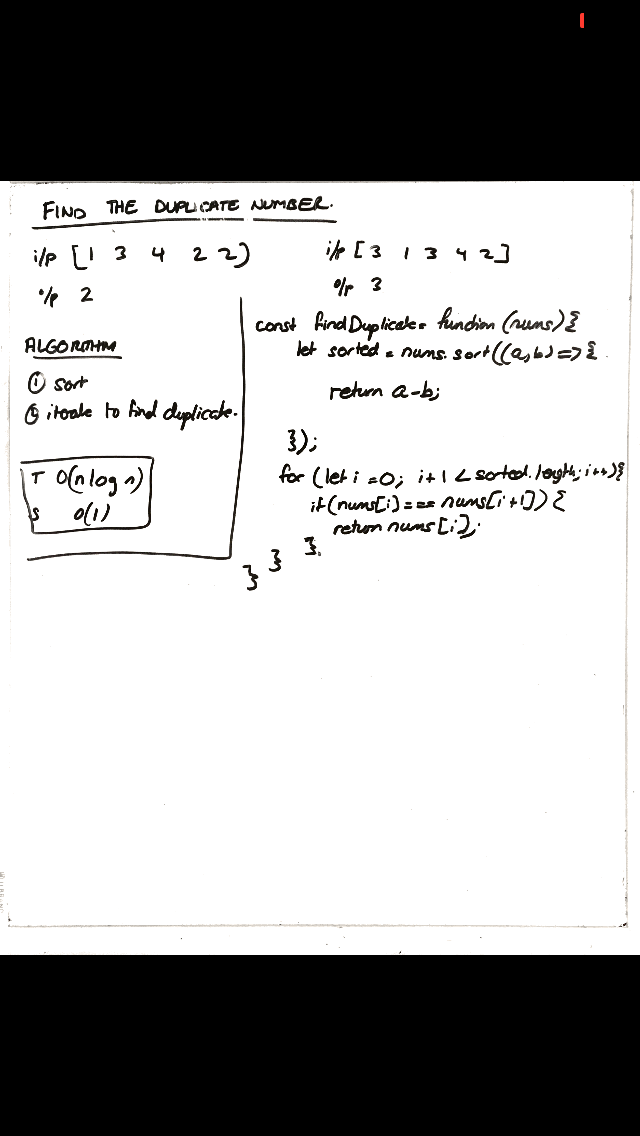 FIND THE DUPLICATE NUMBER.
i/p [1 3 4 2 2)
o/p 2
i/p [3 1 3 4 2]
o/p 3
ALGORITHM
① sort
② iterate to find duplicate.
T O(n log n)
S O(1)
const findDuplicate = function (nums) {
let sorted = nums.sort((a,b) => {
return a-b;
});
for (let i =0; i+1 < sorted.length; i++){
if(nums[i] === nums[i+1]) {
return nums [i];
}.
}
}